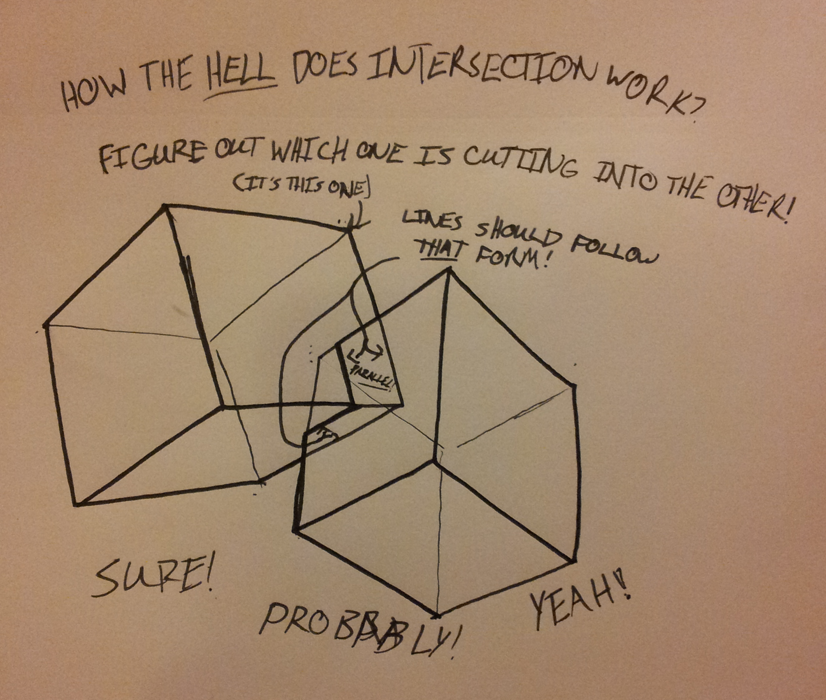 HOW THE HELL DOES INTERSECTION WORK?
FIGURE OUT WHICH ONE IS CUTTING INTO THE OTHER!
(IT'S THIS ONE)
LINES SHOULD FOLLOW
THAT FORM!
PARALLEL!
SURE!
PROBABLY!
YEAH!